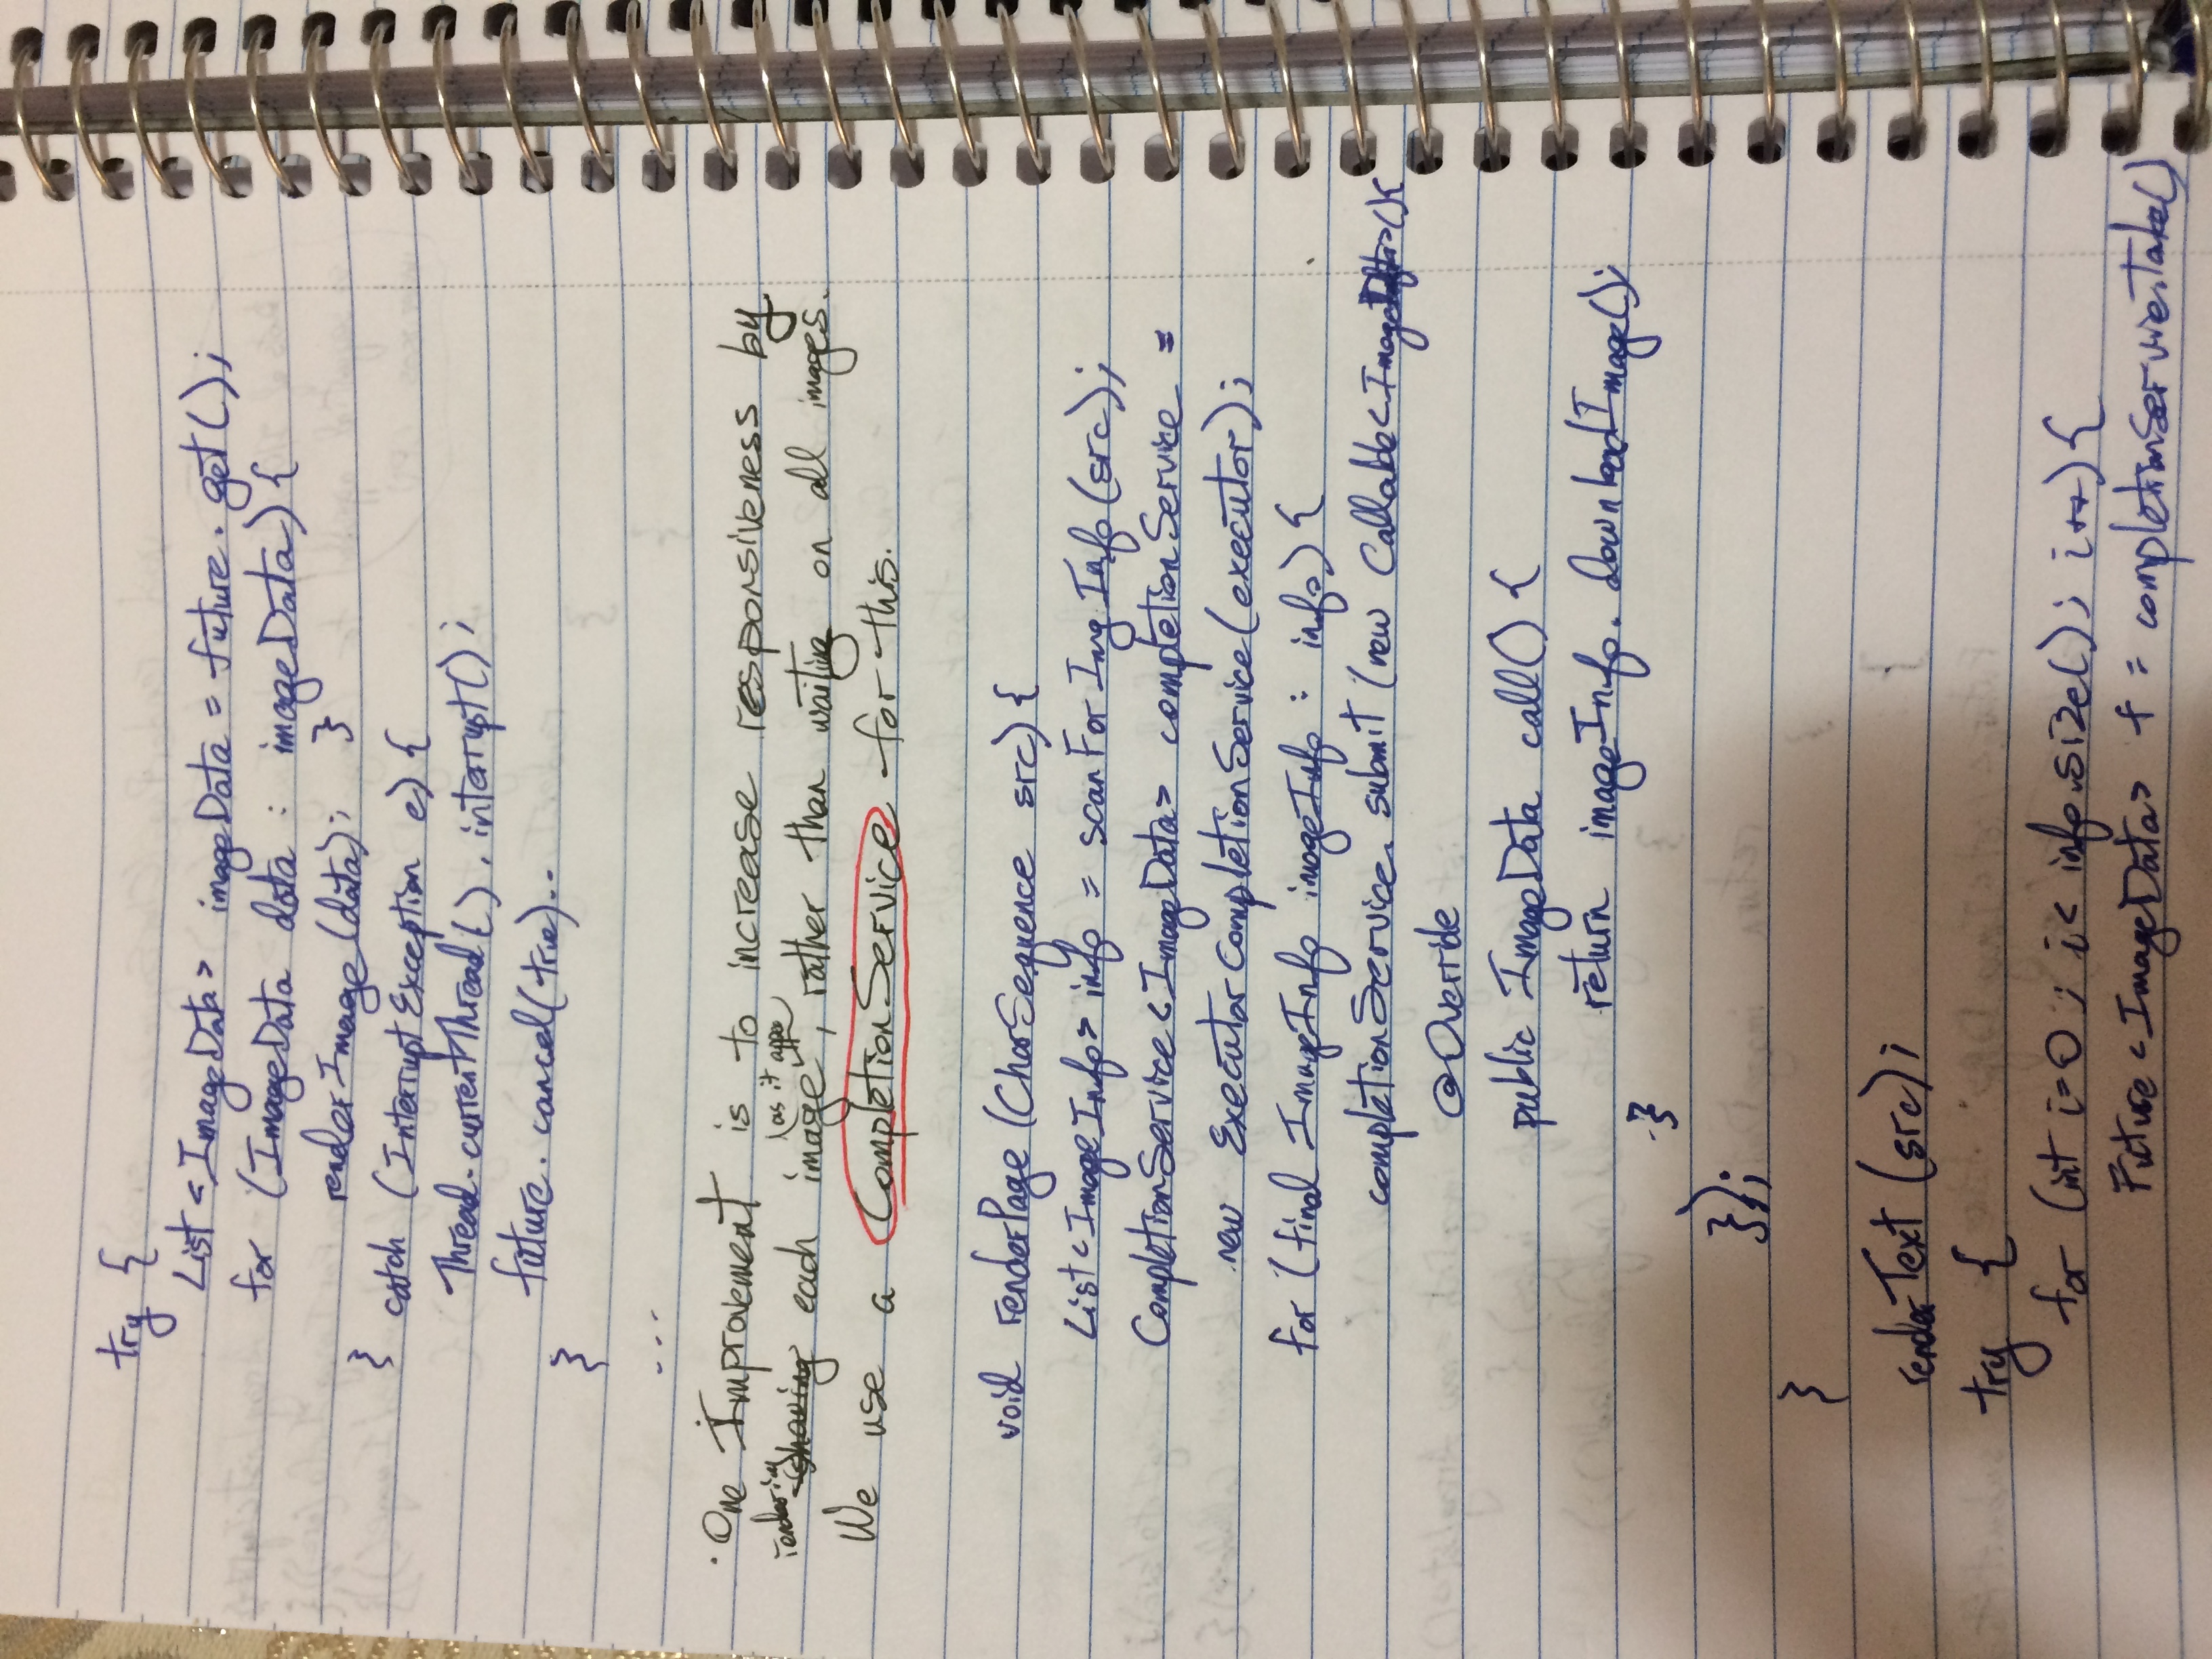 try {
List<ImageData> imageData = future.get();
for (ImageData data : imageData) {
renderImage(data); }
} catch (InterruptException e) {
Thread.currentThread().interrupt();
future.cancel(true)..
}
...
· One Improvement is to increase responsiveness by
rendering sharing each image (as it appe), rather than waiting on all images.
We use a CompletionService for this.
void renderPage (CharSequence src) {
List<ImageInfo> info = scanForImgInfo(src);
CompletionService<ImageData> completionService =
new ExecutorCompletionService(executor);
for (final ImageInfo imageInfo : info) {
completionService.submit (new Callable<ImageData>(){
@Override
public ImageData call() {
return imageInfo.downloadImage();
}
});
}
renderText (src);
try {
for (int i=0 ; i< info.size(); i++) {
Future<ImageData> f = completionService.take()